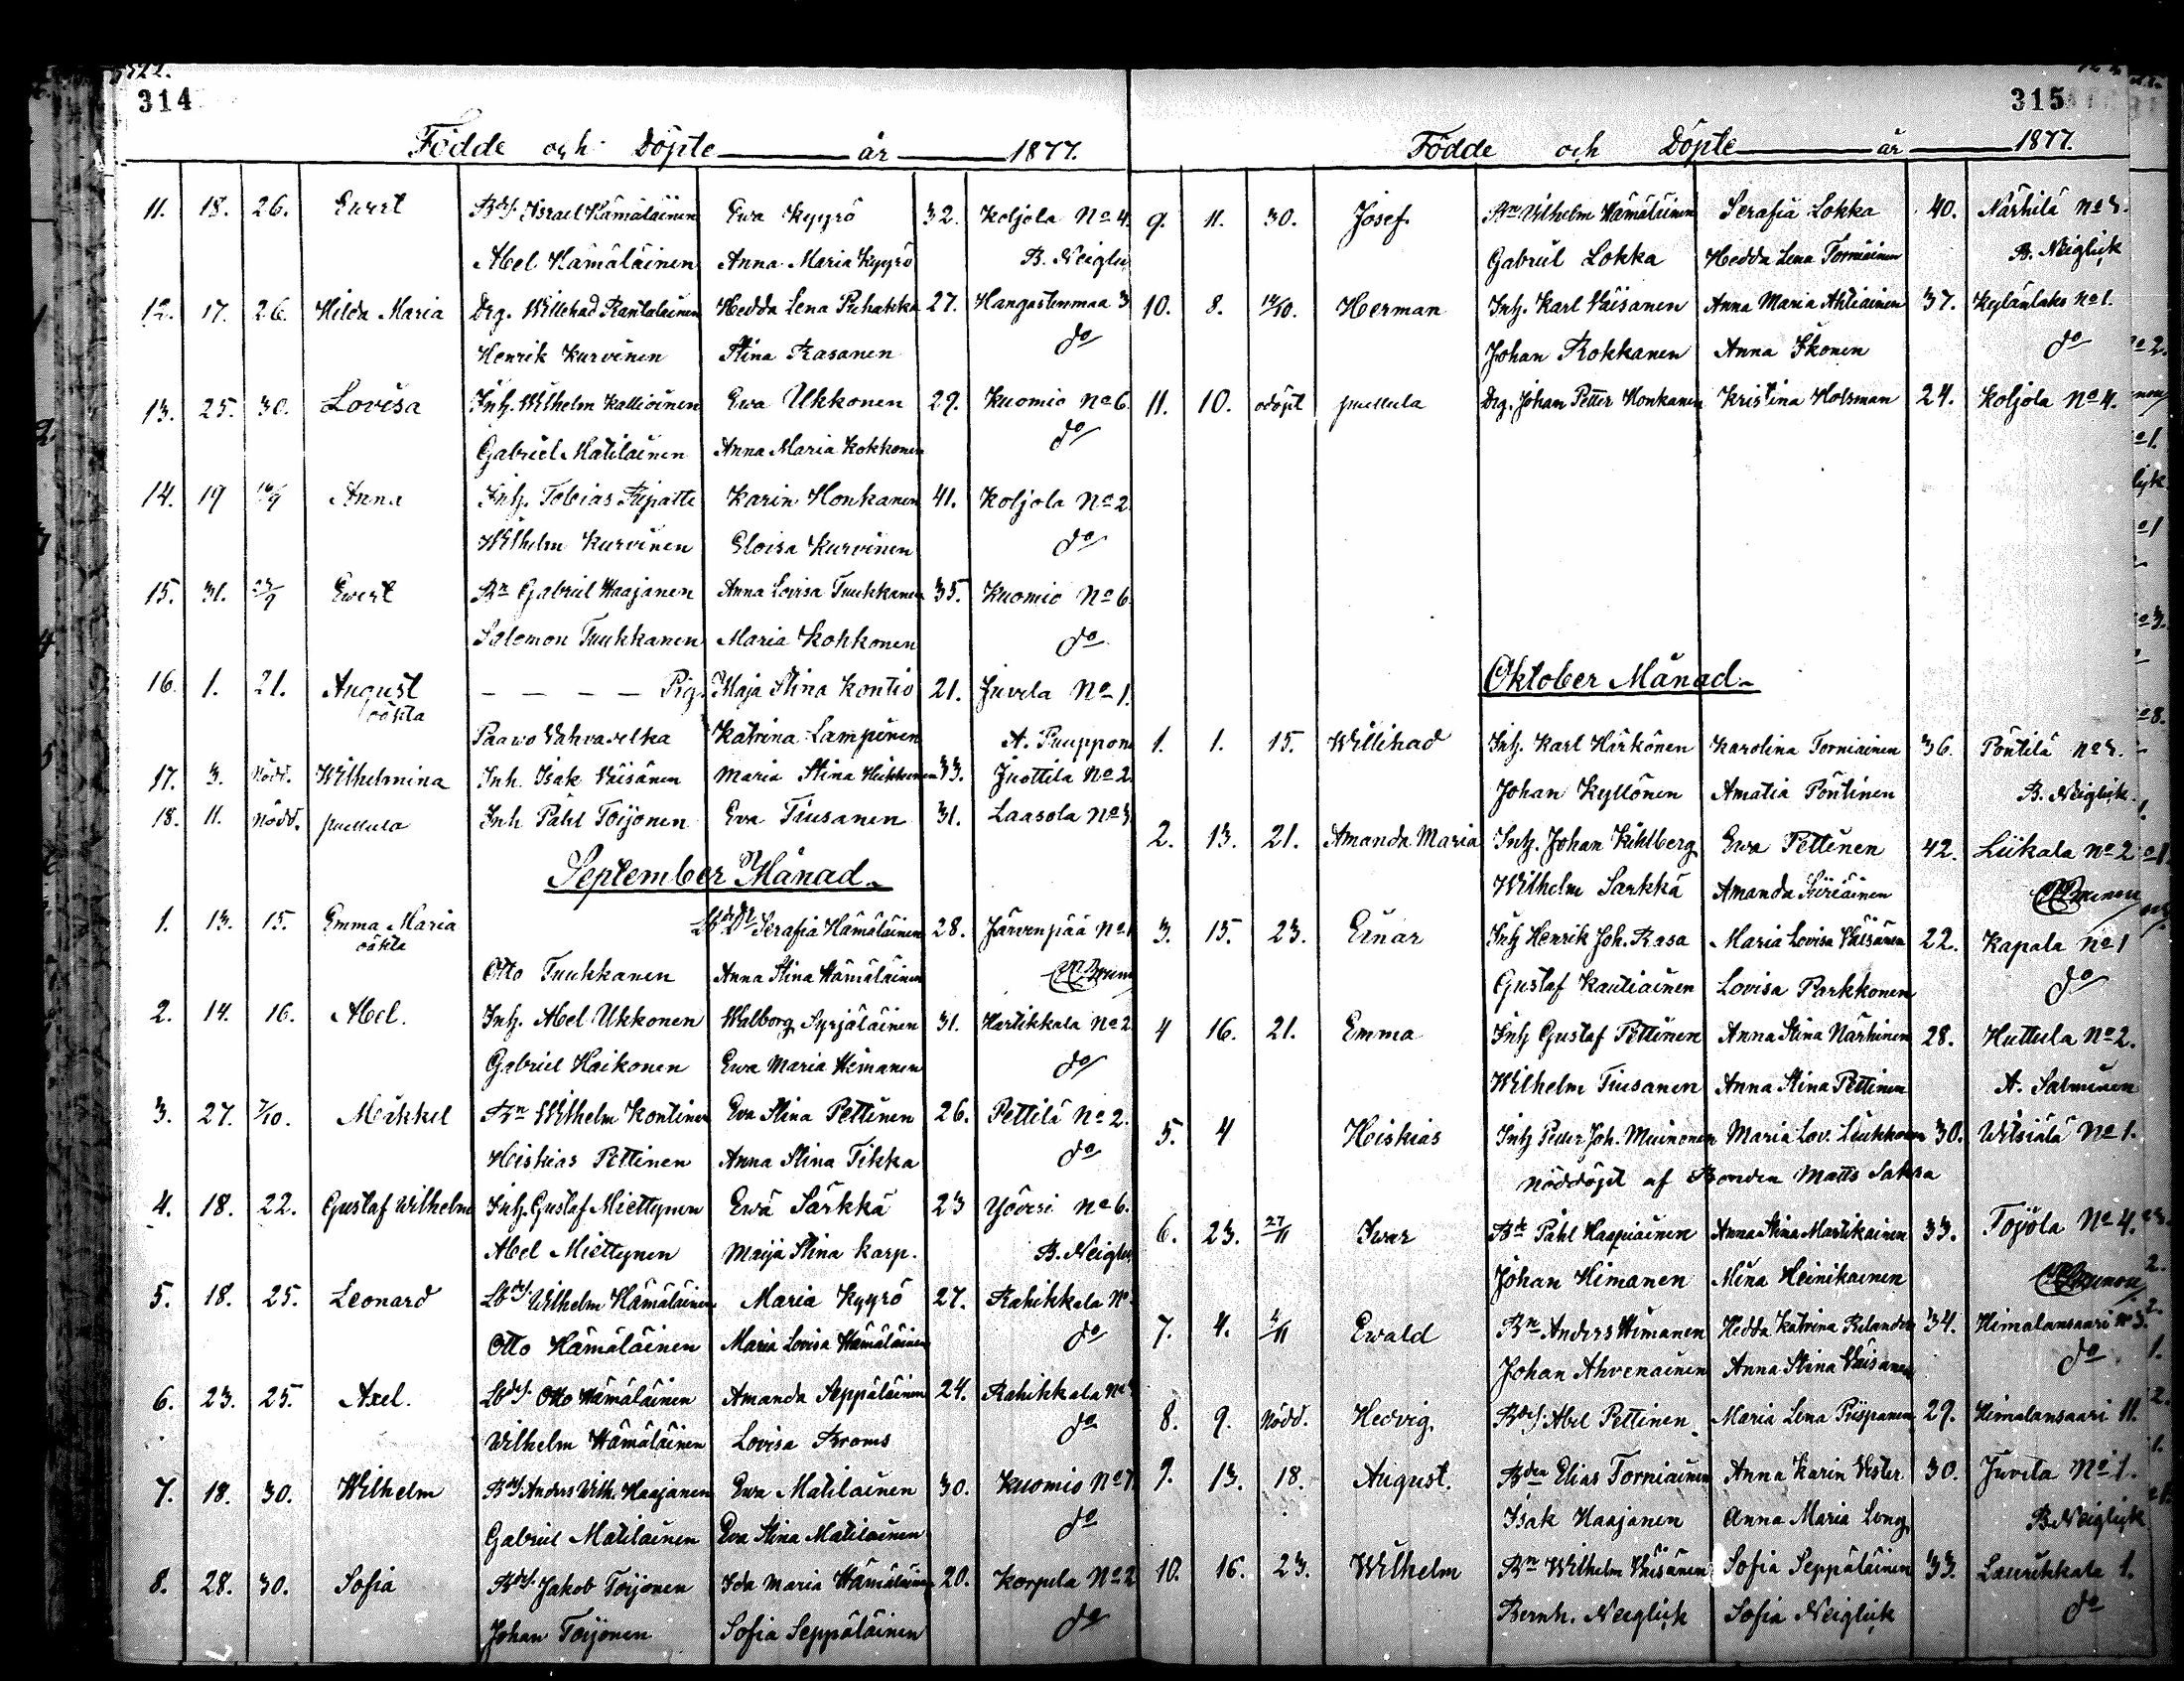 314
Födde och Döpte år 1877.
11. 18. 26. Evert Bds. Israel Hämäläinen Ewa Kyyrö 32. Koljola No 4.
Abel Hämäläinen Anna Maria Kyyrö B. Neiglic
12. 17. 26. Hilda Maria Drg. Willehad Rantalainen Hedda Lena Puhakka 27. Hangastenmaa 3
Henrik Kurvinen Stina Rasanen do
13. 25. 30. Lovisa Inh. Wilhelm Kallioinen Ewa Ukkonen 29. Kuomio No 6.
Gabriel Matilainen Anna Maria Kokkonen do
14. 19 Anna Inh. Tobias Ripatte Karin Honkanen 41. Koljola No 2.
Wilhelm Kurvinen Eloisa Kurvinen do
15. 31. 23/9 Evert Bn Gabriel Haajanen Anna Lovisa Tuukkanen 35. Kuomio No 6.
Salomon Tuukkanen Maria Kohkonen do
16. 1. 21. August — — — — Pig. Maja Stina Kontio 21. Juvela No 1.
oäkta
Paavo Vahvaselka Katrina Lampinen A. Puuppon
17. 3. Nödd. Wilhelmina Inh. Isak Väisänen Maria Stina Heikkinen 33. Juottila No 2.
18. 11. Nödd. puellula Inh Påhl Toijonen Eva Tiusanen 31. Laasola No 3
September Månad.
1. 13. 15. Emma Maria Serafia Hämäläinen 28. Järvenpää No 1
oäkta
Otto Tuukkanen Anna Stina Hämäläinen
2. 14. 16. Abel. Inh. Abel Ukkonen Walborg Syrjäläinen 31. Hartikkala No 2
Gabriel Haikonen Ewa Maria Heimanen do
3. 27. 7/10. Meikkel Bn Wilhelm Kontinen Eva Stina Pettinen 26. Pettilä No 2.
Heiskias Pettinen Anna Stina Tikka do
4. 18. 22. Gustaf Wilhelm Inh. Gustaf Miettynen Ewa Särkkä 23 Yövesi No 6.
Abel Miettynen Maija Stina Karp. B. Neiglic
5. 18. 25. Leonard Lbds. Wilhelm Hämäläinen Maria Kyyrö 27. Rahikkala No
Otto Hämäläinen Maria Lovisa Hämäläinen do
6. 23. 25. Axel. Lbds. Otto Hämäläinen Amanda Seppäläinen 24. Rahikkala No
Wilhelm Hämäläinen Lovisa Broms do
7. 18. 30. Wilhelm Bds. Anders Wilh. Haajanen Ewa Matilainen 30. Kuomio No 7.
Gabriel Matilainen Eva Stina Matilainen do
8. 28. 30. Sofia Bds. Jakob Toijonen Ida Maria Hämäläinen 20. Korpela No 2
Johan Toijonen Sofia Seppäläinen do
315
Födde och Döpte år 1877.
9. 11. 30. Josef. Bn Wilhelm Hämäläinen Serafia Lokka 40. Närhilä No 3.
Gabriel Lokka Hedda Lena Torniainen B. Neiglick
10. 8. 14/10. Herman Inh. Karl Väisanen Anna Maria Ahtiainen 37. Kylänlaks No 1.
Johan Rokkanen Anna Ikonen do
11. 10. odöpt puellula Drg. Johan Petter Honkanen Kristina Holsman 24. Koljola No 4.
Oktober Månad.
1. 1. 15. Willihad Inh. Karl Härkönen Karolina Torniainen 36. Pöntilä No 3.
Johan Kyllönen Amalia Pöntinen B. Neiglick.
2. 13. 21. Amanda Maria Inh. Johan Kihlberg Ewa Pettinen 42. Liikala No 2
Wilhelm Sarkkä Amanda
3. 15. 23. Einar Inh Henrik Joh. Rasa Maria Lovisa Väisänen 22. Kapala No 1
Gustaf Kautiainen Lovisa Parkkonen do
4 16. 21. Emma Inh Gustaf Pettinen Anna Stina Närhinen 28. Huttula No 2.
Wilhelm Tiusanen Anna Stina Pettinen A. Salminen
5. 4 Heiskias Inh Petter Joh. Muinonen Maria Lov. Leukkonen 30. Witsiälä No 1.
nöddöpt af Bonden Matts Saksa
6. 23. 27/11 Iwar Påhl Haapiainen Anna Stina Martikainen 33. Toijola No 4.
Johan Himanen Mina Heinikainen
7. 4. Ewald Bn Anders Himanen Hedda Katrina Relander 34. Himalansaari No 3.
Johan Ahvenainen Anna Stina Väisanen do
8. 9. Nödd. Hedvig Bds. Abel Pettinen Maria Lena Piispanen 29. Himalansaari 11.
9. 13. 18. August. Bden Elias Torniainen Anna Karin Vester 30. Juvela No 1.
Isak Haajanen Anna Maria Leng B. Neiglick
10. 16. 23. Wilhelm Bn Wilhelm Väisänen Sofia Seppäläinen 33. Laurikkala 1.
Bernh. Neiglick Sofia Neiglick do